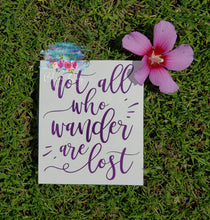 not all
who
wander
are
lost